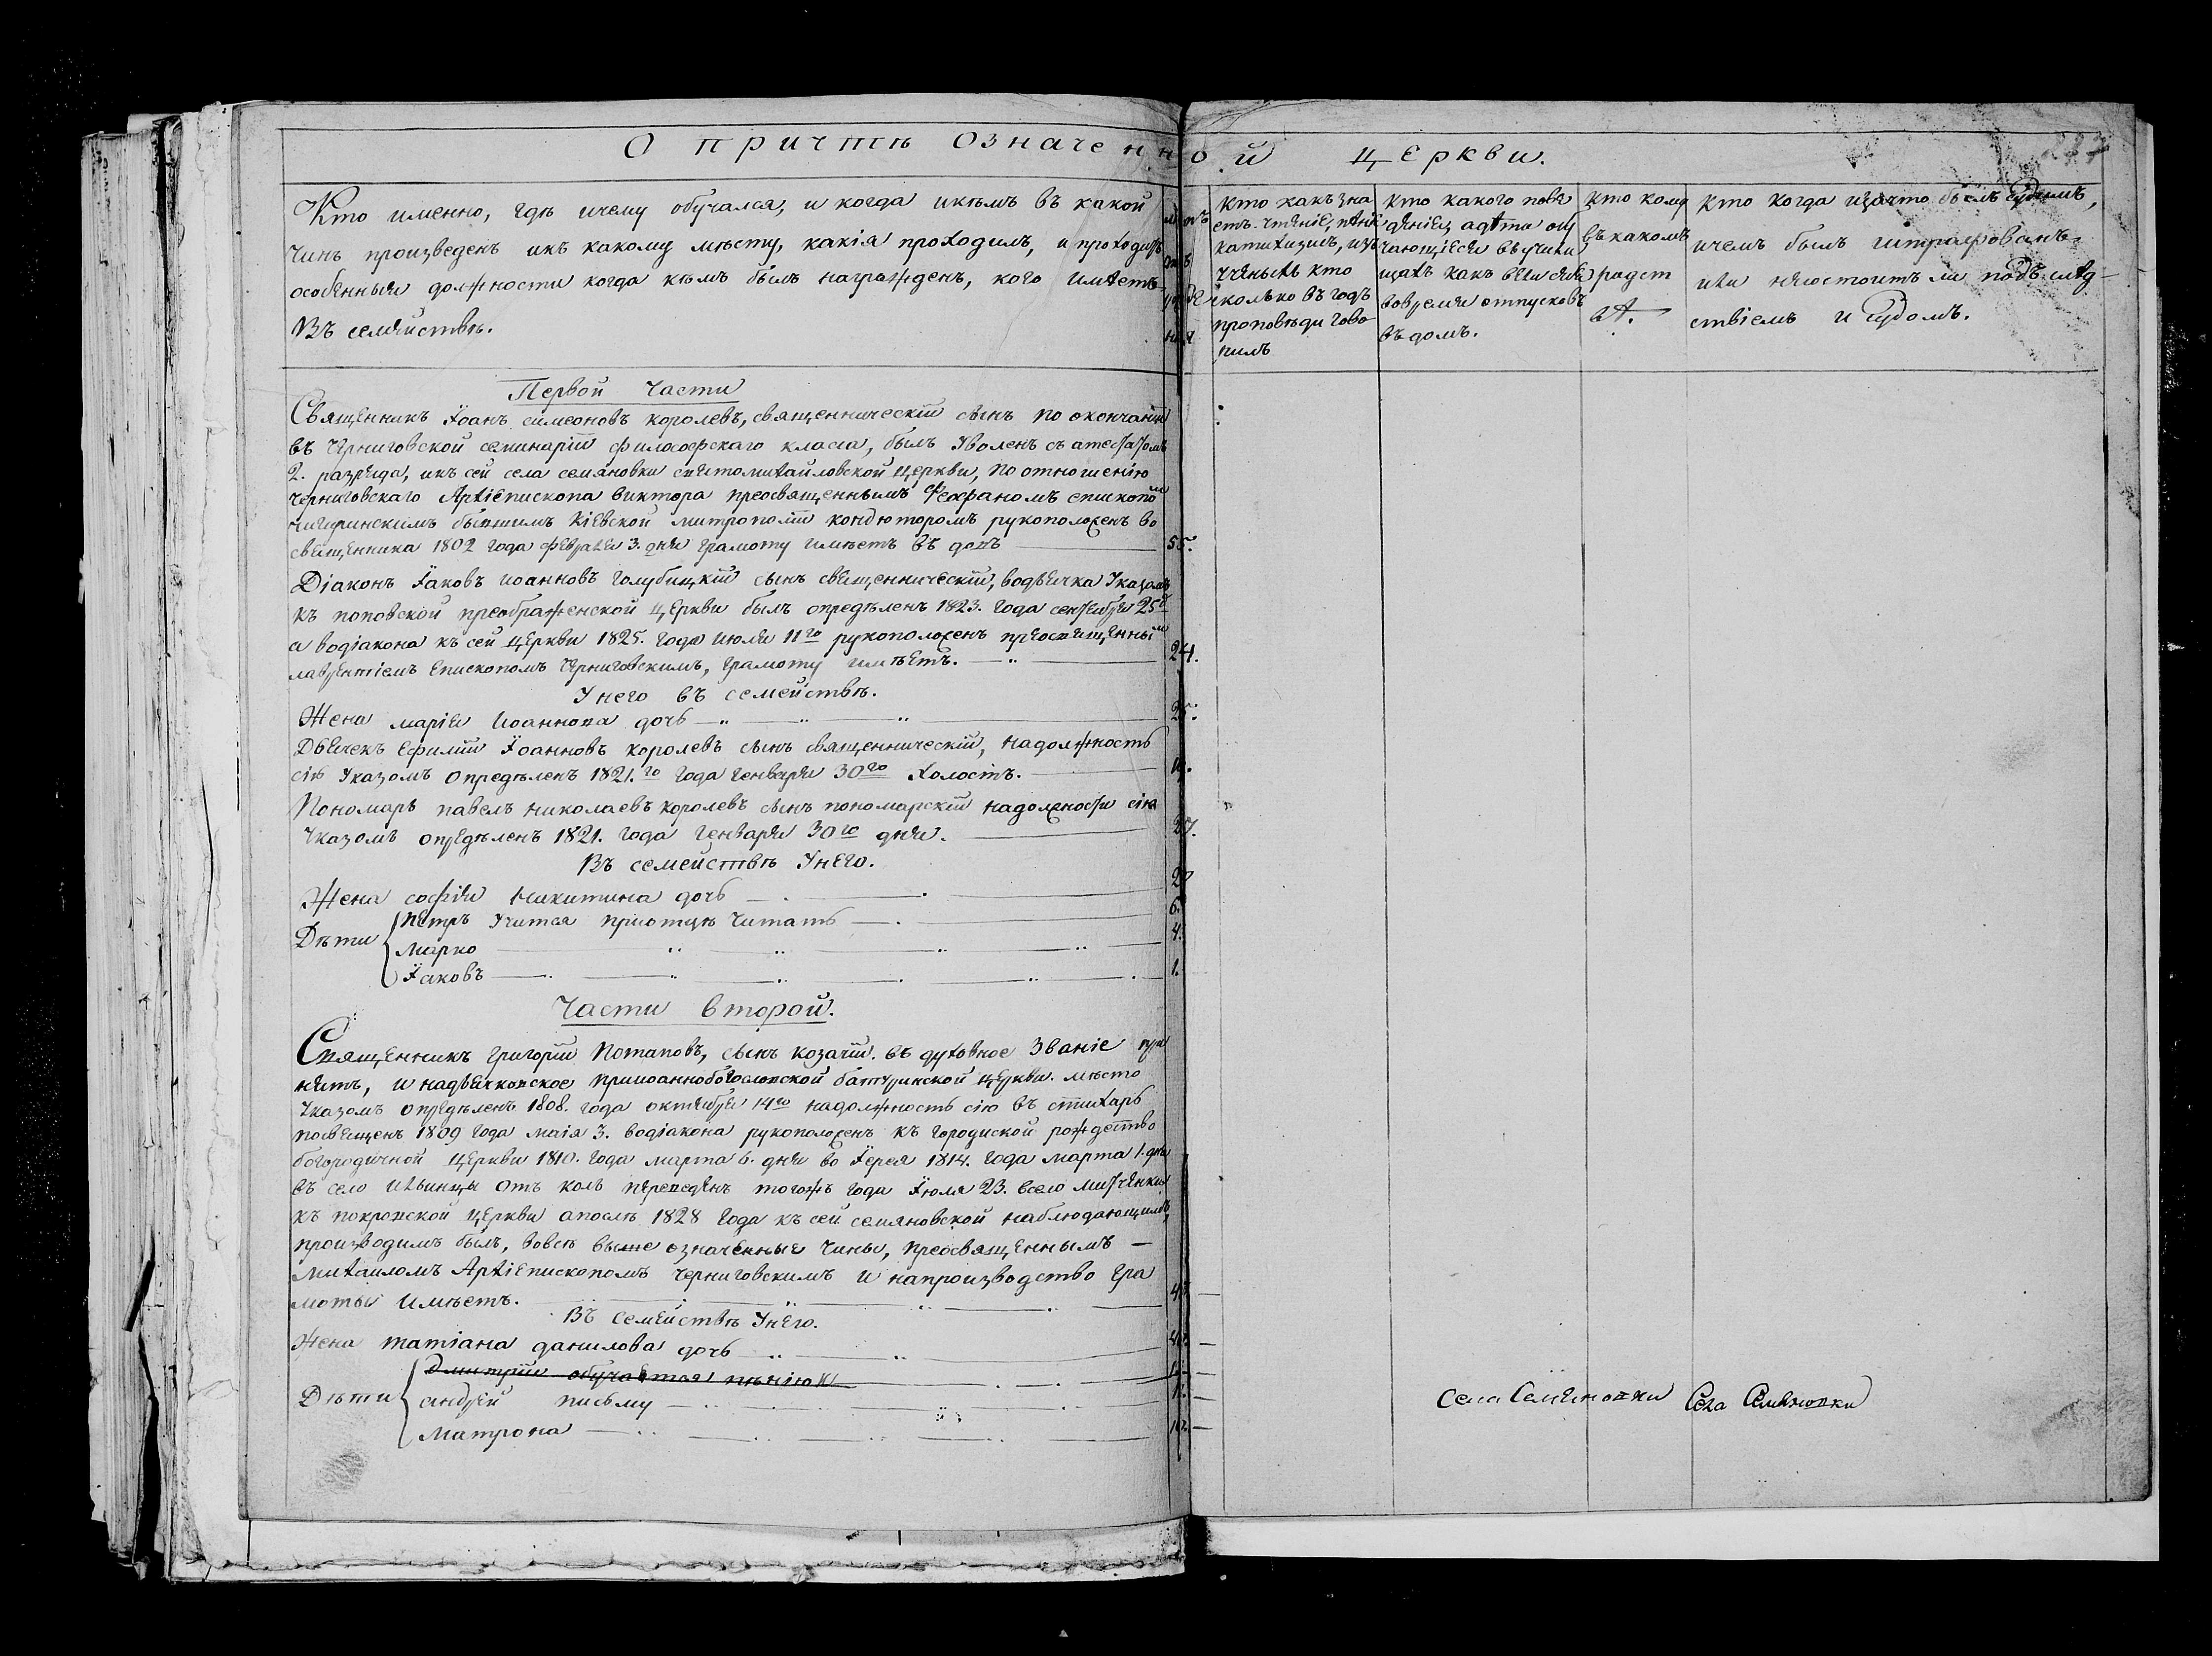 О причтѣ означенной церкви.
287
Кто именно, гдѣ ичему обучался, и когда икѣмъ въ какой
чинъ произведенъ икъ какому мѣсту, какія проходилъ, и проходитъ
особенныя должности когда кѣмъ былъ награжденъ, кого имѣетъ
въ семействѣ.
Кто какъ зна
етъ чтеніе, пѣніе
катихизисъ, изъ
ученыхъ кто
сколько въ годъ
проповѣди гово
рилъ
Кто какого пове
денія, адѣти обу
чающіеся въ учили
щахъ какъ вели себя
вовремя отпусковъ
въ домъ.
Кто кому
въ какомъ
родст
вѣ.
Кто когда изачто былъ судимъ,
ичемъ былъ штрафованъ
или несостоитъ ли подъ слѣд-
ствіемъ и судомъ.
Первой Части
Священникъ Іоанъ симеоновъ королевъ, священническій сынъ по окончаніи
въ Черниговской семинаріи философскаго класса, былъ Уволенъ съ атестатомъ
2. разряда, икъ сей села семяновки святомихайловской церкви, по отношенію
Черниговскаго Архіепископа Виктора преосвященнымъ Феофаномъ епископом
чигиринскимъ бывшимъ Кіевской митрополіи кондюторомъ рукоположенъ во
священника 1802 года февраля 3. дня грамоту имѣетъ 55.
Діаконъ Іаковъ иоанновъ голубицкій сынъ священническій, водьячка Указомъ
къ поповской преображенской церкви былъ опредѣленъ 1823. года сентября 25го
а водіакона къ сей церкви 1825. года июля 11го рукоположенъ преосвященным
лаврентіемъ Епископомъ Черниговскимъ, грамоту имѣетъ. 24.
Унего въ семействѣ.
Жена марія Иоаннова дочь 25.
Дьячекъ Ефимій Іоанновъ королевъ сынъ священническій, надолжность
сію Указомъ опредѣленъ 1821.го года генваря 30го холостъ.
Пономарь павелъ николаевъ королевъ сынъ пономарскій надолжность сію
Указомъ опредѣленъ 1821. года генваря 30го дня. 27.
Въ семействѣ Унего.
Жена софія Никитина дочь 27
Дѣти Петръ Учится приотцѣ читать 6.
Марко 4.
Іаковъ 1.
Части второй.
Священникъ григорій Потаповъ, сынъ козачій. въ духовное Званіе при
нятъ, и надьячковское приіоаннобогословской батуринской церкви мѣсто
Указомъ опредѣленъ 1808. года октября 14го надолжность сію въ стихарь
посвященъ 1809 года маія 3. водіакона рукоположенъ къ городиской рождество
богородичной церкви 1810. года марта 6. дня во Іерея 1814. года марта 1. дня
въ село Ильинцы отъ коль переведенъ тогожъ года Іюля 23. всело Митченки
къ покровской церкви апослѣ 1828 года къ сей семяновской наблюдающимъ,
производимъ былъ, вовсѣ выше означенные чины, преосвященнымъ —
Михаиломъ Архіепископомъ Черниговскимъ и напроизводство гра
моты имѣетъ.
Въ семействѣ Унего.
Жена татіана данилова дочь
Дѣти Дмитрій обучается пѣнію и
андрей письму
Матрона
Села Семяновки Села Семяновки